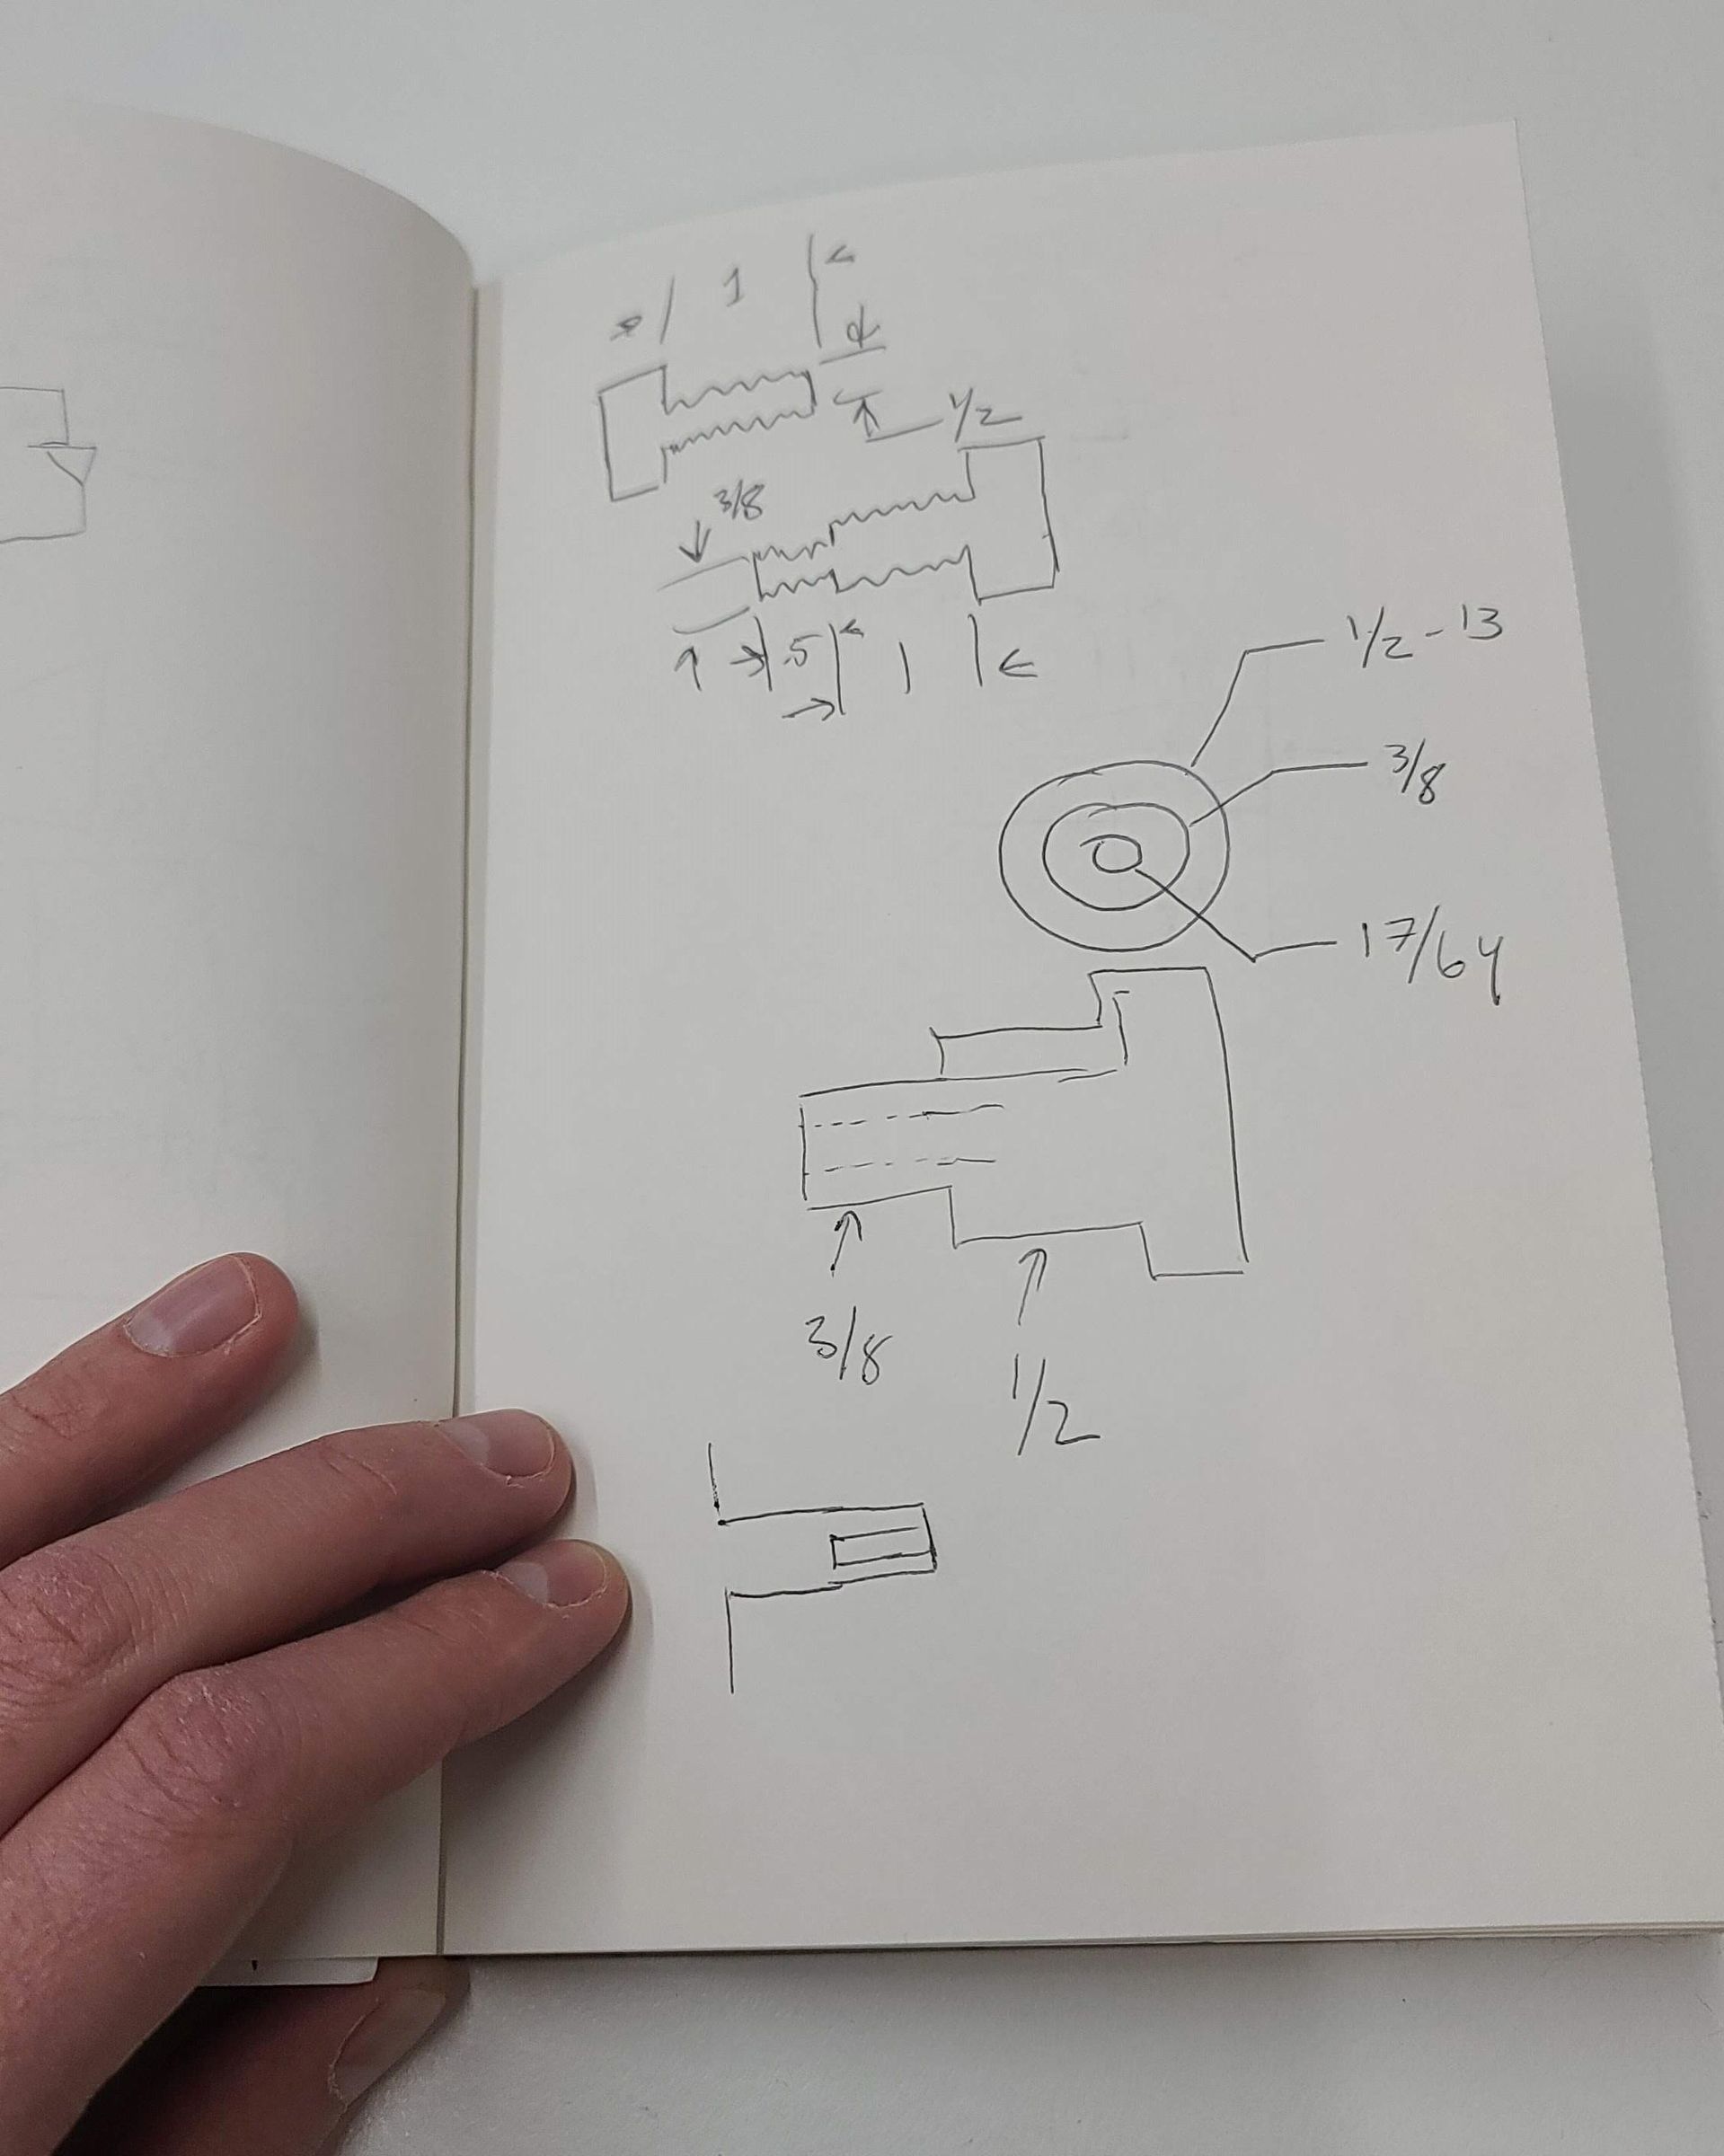 1
1/2
3/8
.5 1
1/2-13
3/8
17/64
3/8
1/2